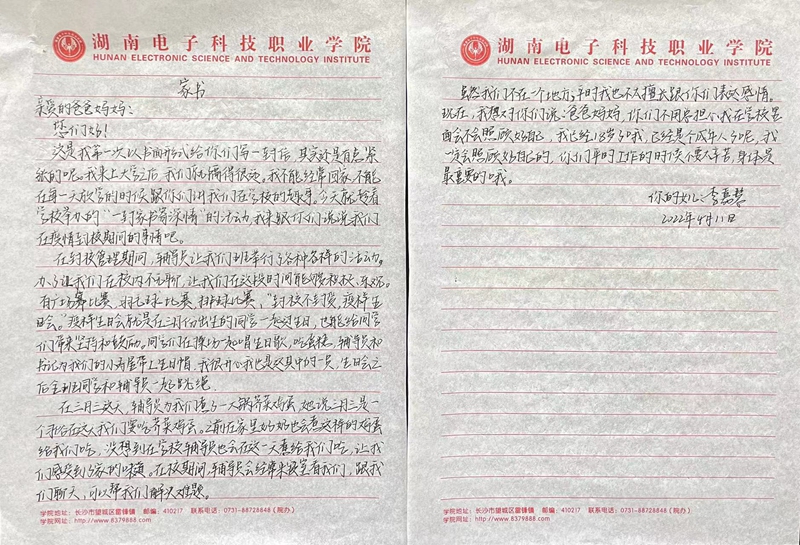 湖南电子科技职业学院
HUNAN ELECTRONIC SCIENCE AND TECHNOLOGY INSTITUTE
家书
亲爱的爸爸妈妈：
您们好！
这是我第一次以书面形式给你们写一封信，其实还是有点紧
张的呢。我来上大学后，我们隔得很远，我不能经常回家，不能
在每一天放学的时候跟你们讲我们在学校的趣事。今天就趁着
学校举办的“一封家书寄深情”的活动，我来跟你们说说我们
在疫情封校期间的事情吧。
在封校管理期间，辅导员让我们班举行了各种各样的活动。
为了让我们在校内不无聊，让我们在这段时间能够
有广场舞比赛、羽毛球比赛、排球比赛，“封校不封爱，疫样生
日会。”疫样生日会就是在三月份出生的同学一起过生日，也能给同学
们带来坚持和鼓励。同学们在操场一起唱生日歌，吃蛋糕，辅导员和
书记为我们的小寿星带上生日帽，我很开心我也是这其中的一员，生日会之
后全班同学和辅导员一起跳绳。
在三月三这天，辅导员为我们煮了一大锅荠菜鸡蛋，她说三月三是一
个习俗在这天我们要吃荠菜鸡蛋。之前在家里奶奶也会煮这样的鸡蛋
给我们吃，没想到在学校辅导员也会在这一天煮给我们吃，让我
们感受到了家的味道。在校期间，辅导员会经常来寝室看我们，跟我
们聊天，可以帮我们解决难题。
学院地址：长沙市望城区雷锋镇 邮编：410217 联系电话：0731-88728848（院办）
学院网址：http://www.8379888.com
湖南电子科技职业学院
HUNAN ELECTRONIC SCIENCE AND TECHNOLOGY INSTITUTE
虽然我们不在一个地方，平时我也不太擅长跟你们表达感情。
现在，我想对你们说：爸爸妈妈，你们不用总担心我在学校里
面会不会照顾好自己，我已经18岁了哦，已经是个成年人了呢，我
一定会照顾好自己的，你们平时工作的时候不要太辛苦，身体是
最重要的哦。
你的女儿：李嘉慧
2022年4月11日
学院地址：长沙市望城区雷锋镇 邮编：410217 联系电话：0731-88728848（院办）
学院网址：http://www.8379888.com